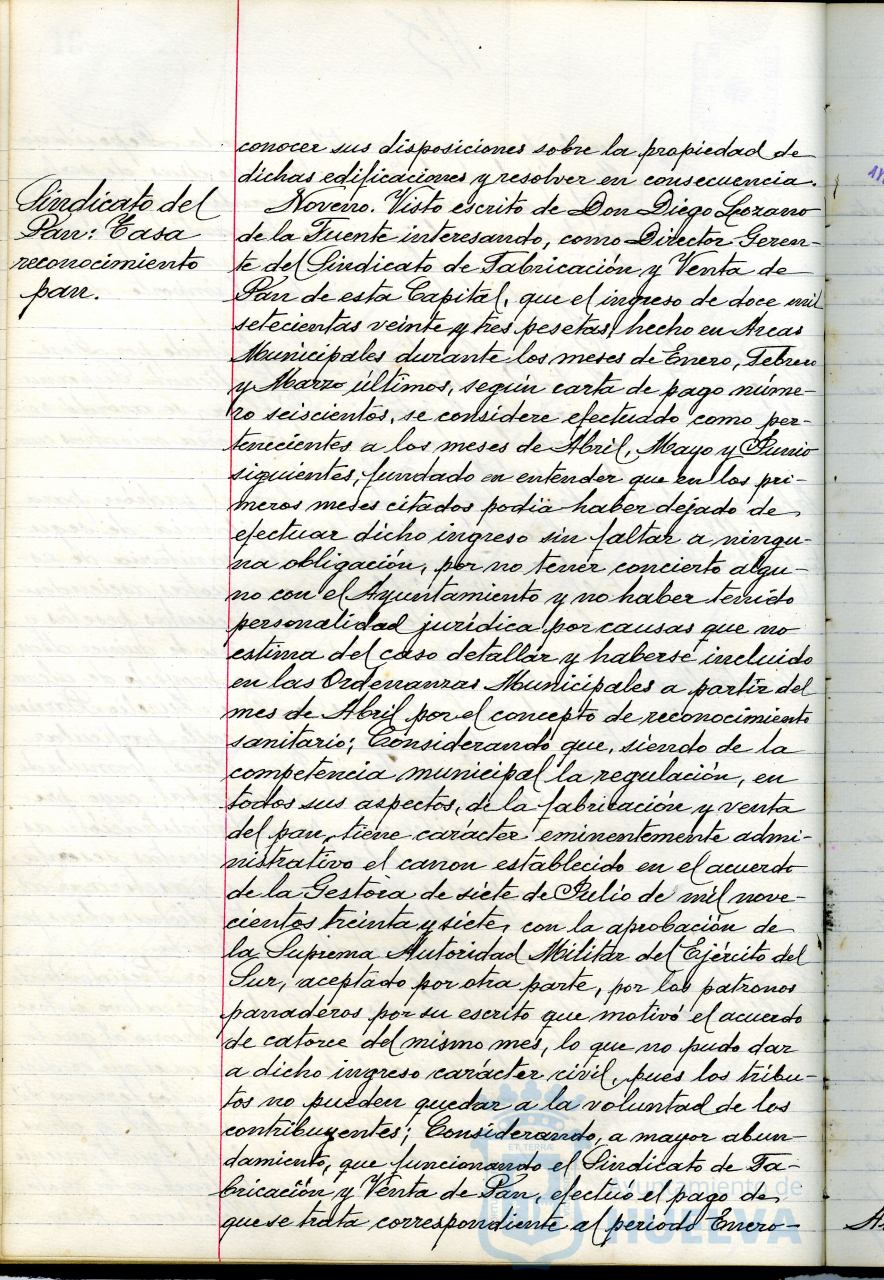 conocer sus disposiciones sobre la propiedad de
dichas edificaciones y resolver en consecuencia.
Sindicato del
Pan: Tasa
reconocimiento
pan.
Noveno. Visto escrito de Don Diego Lozano
de la Fuente interesando, como Director Geren-
te del Sindicato de Fabricación y Venta de
Pan de esta Capital, que el ingreso de doce mil
setecientas veinte y tres pesetas, hecho en Arcas
Municipales durante los meses de Enero, Febrero
y Marzo últimos, según carta de pago núme-
ro seiscientos, se considere efectuado como per-
tenecientes a los meses de Abril, Mayo y Junio
siguientes, fundado en entender que en los pri-
meros meses citados podia haber dejado de
efectuar dicho ingreso sin faltar a ningu-
na obligación, por no tener concierto algu-
no con el Ayuntamiento y no haber tenido
personalidad jurídica por causas que no
estima del caso detallar y haberse incluido
en las Ordenanzas Municipales a partir del
mes de Abril por el concepto de reconocimiento
sanitario; Considerando que, siendo de la
competencia municipal la regulación, en
todos sus aspectos, de la fabricación y venta
del pan, tiene carácter eminentemente admi-
nistrativo el canon establecido en el acuerdo
de la Gestora de siete de Julio de mil nove-
cientos treinta y siete, con la aprobación de
la Suprema Autoridad Militar del Ejército del
Sur, aceptado por otra parte, por los patronos
panaderos por su escrito que motivó el acuerdo
de catorce del mismo mes, lo que no pudo dar
a dicho ingreso carácter civil, pues los tribu-
tos no pueden quedar a la voluntad de los
contribuyentes; Considerando, a mayor abun-
damiento, que funcionando el Sindicato de Fa-
bricación y Venta de Pan, efectuó el pago de
que se trata correspondiente al periodo Enero-
Ayuntamiento de
HUELVA